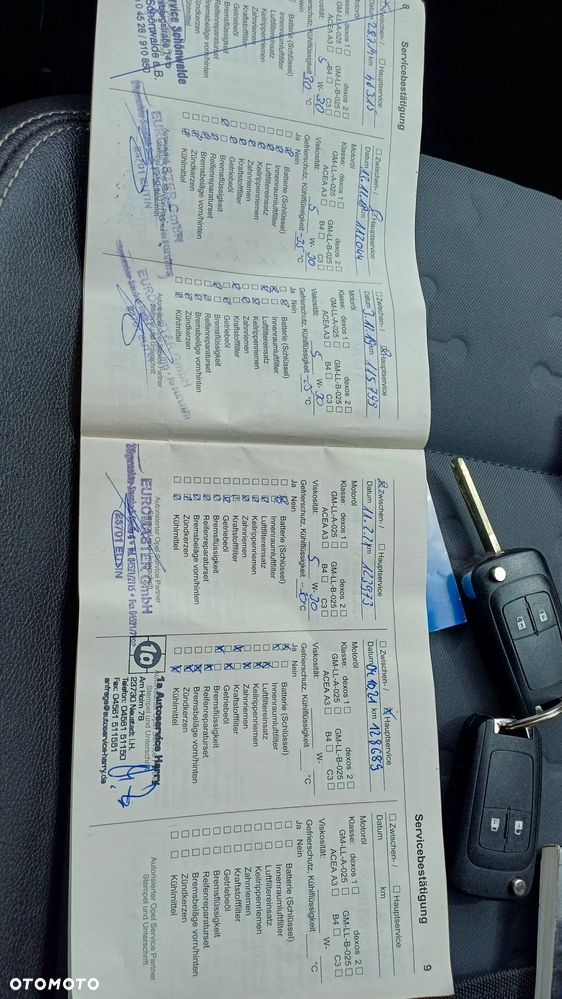 8
Servicebestätigung
☒ Zwischen- / ☐ Hauptservice
km
Motoröl
Klasse: dexos 1 ☐ dexos 2 ☐
GM-LL-A-025 ☐ GM-LL-B-025 ☐
ACEA A3 ☐ B4 ☐ C3 ☐
Viskosität: 5 W- 30
Gefrierschutz, Kühlflüssigkeit -30 °C
Ja Nein
Batterie (Schlüssel)
Innenraumluftfilter
Luftfiltereinsatz
Keilrippenriemen
Zahnriemen
Kraftstofffilter
Getriebeöl
Bremsflüssigkeit
Reifenreparaturset
Bremsbeläge vorn/hinten
Zündkerzen
Kühlmittel
Service Schönwalde
Schönwalde a.B.
0 45 28 / 910 850
☐ Zwischen- / ☒ Hauptservice
Datum km 112044
Motoröl
Klasse: dexos 1 ☐ dexos 2 ☐
GM-LL-A-025 ☐ GM-LL-B-025 ☐
ACEA A3 ☐ B4 ☐ C3 ☐
Viskosität: 5 W- 30
Gefrierschutz, Kühlflüssigkeit -25 °C
Ja Nein
Batterie (Schlüssel)
Innenraumluftfilter
Luftfiltereinsatz
Keilrippenriemen
Zahnriemen
Kraftstofffilter
Getriebeöl
Bremsflüssigkeit
Reifenreparaturset
Bremsbeläge vorn/hinten
Zündkerzen
Kühlmittel
23701 EUTIN
☐ Zwischen- / ☒ Hauptservice
Datum 3.11.19 km 115799
Motoröl
Klasse: dexos 1 ☐ dexos 2 ☐
GM-LL-A-025 ☐ GM-LL-B-025 ☐
ACEA A3 ☐ B4 ☐ C3 ☐
Viskosität: 5 W- 30
Gefrierschutz, Kühlflüssigkeit -25 °C
Ja Nein
Batterie (Schlüssel)
Innenraumluftfilter
Luftfiltereinsatz
Keilrippenriemen
Zahnriemen
Kraftstofffilter
Getriebeöl
Bremsflüssigkeit
Reifenreparaturset
Bremsbeläge vorn/hinten
Zündkerzen
Kühlmittel
Autorisierter Opel Service Partner
Stempel und Unterschrift
EUROMASTER GmbH
☒ Zwischen- / ☐ Hauptservice
Datum km 123973
Motoröl
Klasse: dexos 1 ☐ dexos 2 ☐
GM-LL-A-025 ☐ GM-LL-B-025 ☐
ACEA A3 ☐ B4 ☐ C3 ☐
Viskosität: 5 W- 30
Gefrierschutz, Kühlflüssigkeit °C
Ja Nein
Batterie (Schlüssel)
Innenraumluftfilter
Luftfiltereinsatz
Keilrippenriemen
Zahnriemen
Kraftstofffilter
Getriebeöl
Bremsflüssigkeit
Reifenreparaturset
Bremsbeläge vorn/hinten
Zündkerzen
Kühlmittel
Autorisierter Opel Service Partner
EUROMASTER GmbH
23701 EUTIN
☐ Zwischen- / ☒ Hauptservice
Datum 04.10.21 km 128689
Motoröl
Klasse: dexos 1 ☐ dexos 2 ☐
GM-LL-A-025 ☐ GM-LL-B-025 ☐
ACEA A3 ☐ B4 ☐ C3 ☐
Viskosität: W-
Gefrierschutz, Kühlflüssigkeit °C
Ja Nein
Batterie (Schlüssel)
Innenraumluftfilter
Luftfiltereinsatz
Keilrippenriemen
Zahnriemen
Kraftstofffilter
Getriebeöl
Bremsflüssigkeit
Reifenreparaturset
Bremsbeläge vorn/hinten
Zündkerzen
Kühlmittel
1a
1a Autoservice Harry
Stempel und Unterschrift
Am Holm 78
23730 Neustadt i.H.
Telefon: 04561 51150
Fax: 04561 511551
anfrage@autoservice-harry.de
Servicebestätigung
9
☐ Zwischen- / ☐ Hauptservice
Datum km
Motoröl
Klasse: dexos 1 ☐ dexos 2 ☐
GM-LL-A-025 ☐ GM-LL-B-025 ☐
ACEA A3 ☐ B4 ☐ C3 ☐
Viskosität: W-
Gefrierschutz, Kühlflüssigkeit °C
Ja Nein
☐ ☐ Batterie (Schlüssel)
☐ ☐ Innenraumluftfilter
☐ ☐ Luftfiltereinsatz
☐ ☐ Keilrippenriemen
☐ ☐ Zahnriemen
☐ ☐ Kraftstofffilter
☐ ☐ Getriebeöl
☐ ☐ Bremsflüssigkeit
☐ ☐ Reifenreparaturset
☐ ☐ Bremsbeläge vorn/hinten
☐ ☐ Zündkerzen
☐ ☐ Kühlmittel
Autorisierter Opel Service Partner
Stempel und Unterschrift
OTOMOTO